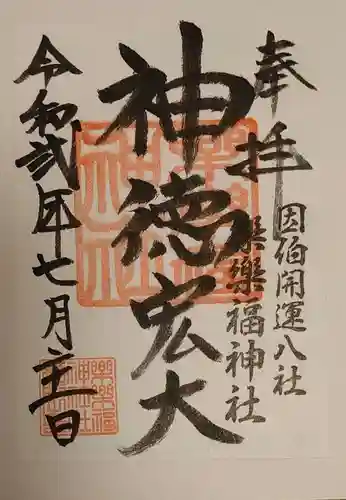 奉拝
因伯開運八社
樂樂福神社
神徳宏大
令和弐年七月